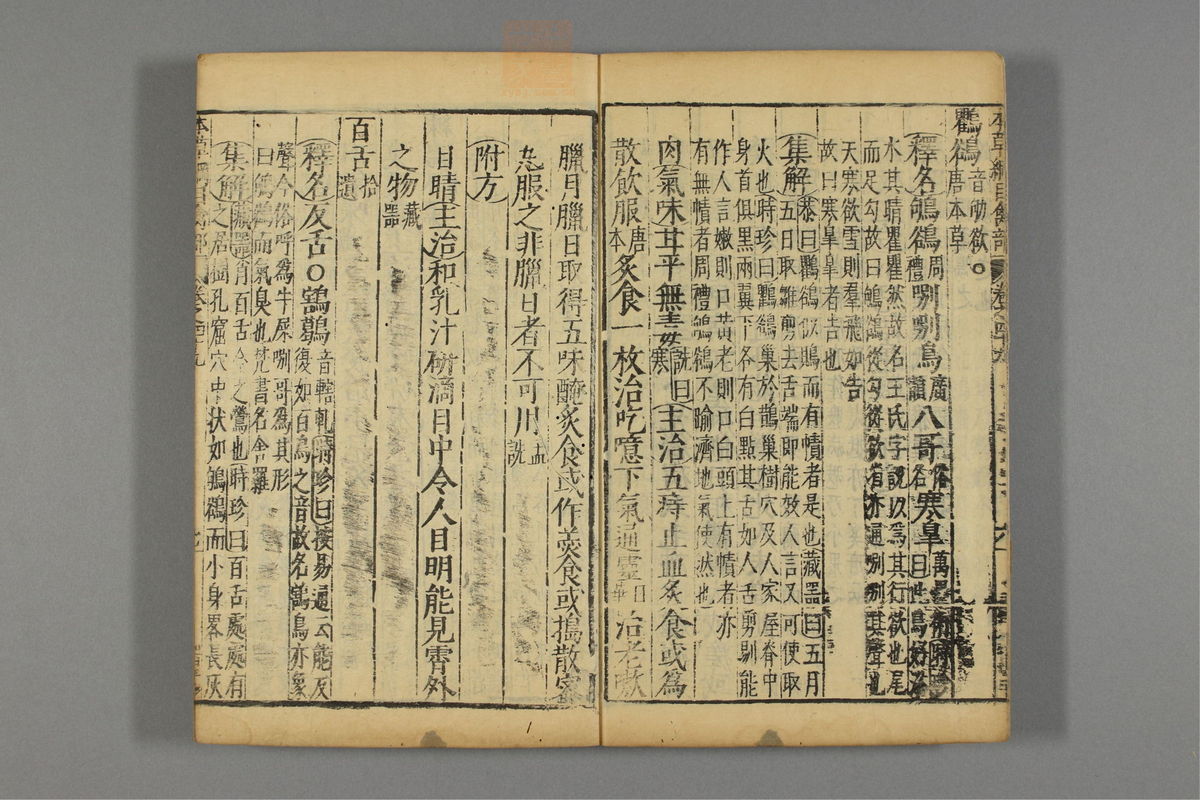 本草綱目禽部 卷之四十九
鸜鵒音劬欲○唐本草
釋名鴝鵒周禮哵哵鳥廣韻八哥俗名寒皐萬畢術時珍曰此鳥好浴
水其睛瞿瞿然故名王氏字說以爲其行欲也尾
而足勾故曰鴝鵒從勾從欲省亦通哵哵其聲也
天寒欲雪則羣飛如告
故曰寒皐皐者告也
集解恭曰鸜鵒似鵙而有幘者是也藏器曰五月
五日取雛剪去舌端即能效人言又可使取
火也時珍曰鸜鵒巢於鵲巢樹穴及人家屋脊中
身首俱黑兩翼下各有白點其舌如人舌剪剔能
作人言嫩則口黃老則口白頭上有幘者亦
有無幘者周禮鴝鵒不踰濟地氣使然也
肉氣味甘平無毒詵曰寒主治五痔止血炙食或爲
散飲服唐本炙食一枚治吃噫下氣通靈日華治老嗽
臘日臘日取得五味醃炙食或作羹食或搗散蜜
丸服之非臘日者不可用孟詵
附方
目睛主治和乳汁研滴目中令人目明能見霄外
之物藏器
百舌拾遺
釋名反舌○鶷鶡音轄軋時珍曰按易通云能反
復如百鳥之音故名鶷鳥亦象
聲今俗呼爲牛屎哵哥爲其形
曰鴝鵒而氣臭也梵書名舍羅
集解藏器曰肖百舌今之鶯也時珍曰百舌處處有
之居樹孔窟穴中狀如鴝鵒而小身畧長灰